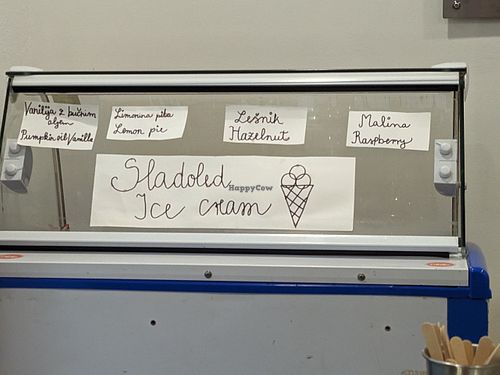 Vanilija z bučnim
oljem
Pumpkin oil/Vanilla
Limonina pita
Lemon pie
Lešnik
Hazelnut
Malina
Raspberry
Sladoled
Ice cream
HappyCow